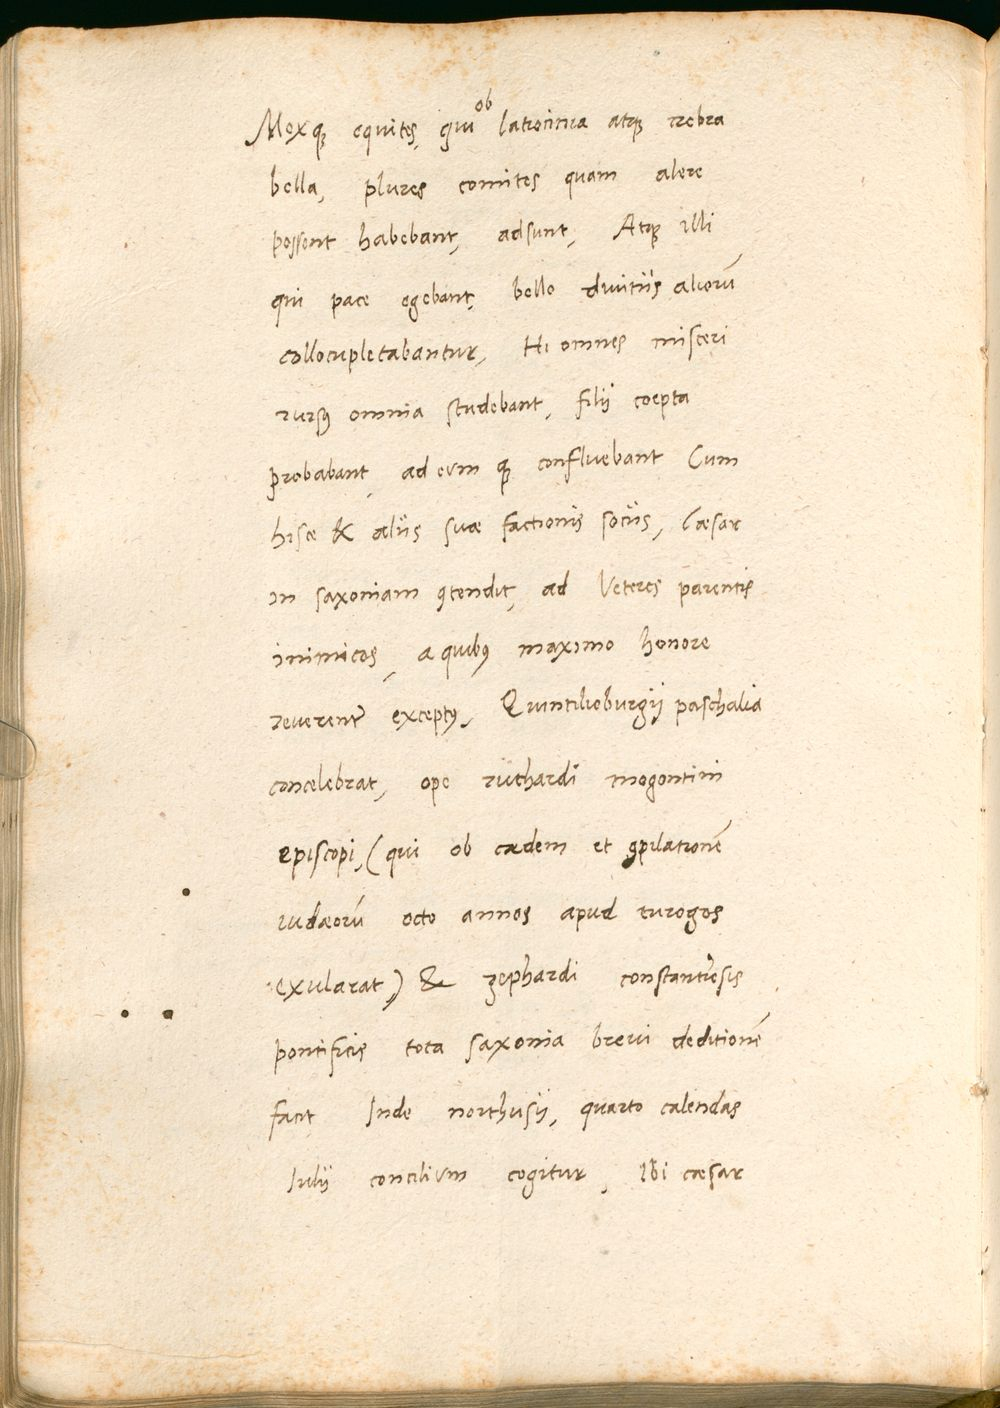 Moxq̧ equites, qui ob latrocinia atq̧ crebra
bella, plures comites quam alere
possent habebant, adsunt, Atq̧ illi
qui pace egebant, bello diuitiis aliorū
collocupletabantur, Hi omnes misceri
rursꝰ omnia studebant, filij coepta
probabant, ad eum q̧ confluebant Cum
hisce & aliis suæ factionis sociis, Cæsar
in saxoniam ꝯtendit, ad Veteres parentis
inimicos, a quibꝰ maximo honore
reuerent̃ exceptꝰ, Quintilioburgij paschalia
concelebrat, ope ruthardi mogontini
episcopi, (qui ob cædem et ꝯpilationē
iudæorū octo annos apud turogos
exularat,) & zephardi constantiẽsis
pontificis tota saxonia breui deditionē
facit Inde northusij, quarto calendas
Iulij concilium cogitur, Ibi cæsar